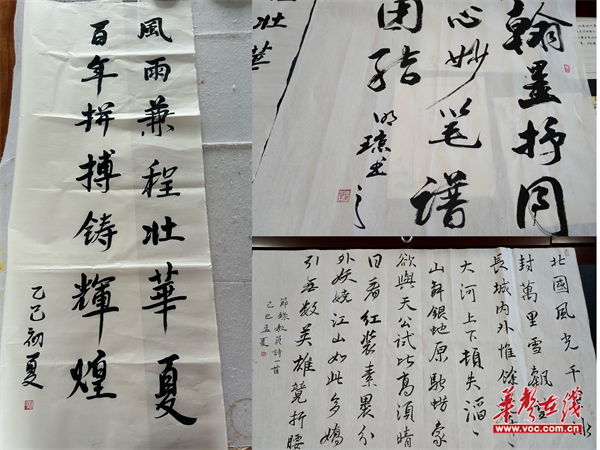 風雨兼程壯華夏
百年拼搏鑄輝煌
乙巳初夏
壮華
翰墨抒同
心妙笔谱
团结
书
北國風光千
封萬里雪飄
長城内外惟餘
大河上下頓失滔、
山舞銀蛇原馳蜡象
欲與天公試比高須晴
日看紅裝素裹分
外妖嬈江山如此多嬌
引無數英雄競折腰
節錄教員詩一首
乙巳孟夏
華聲在线
www.voc.com.cn